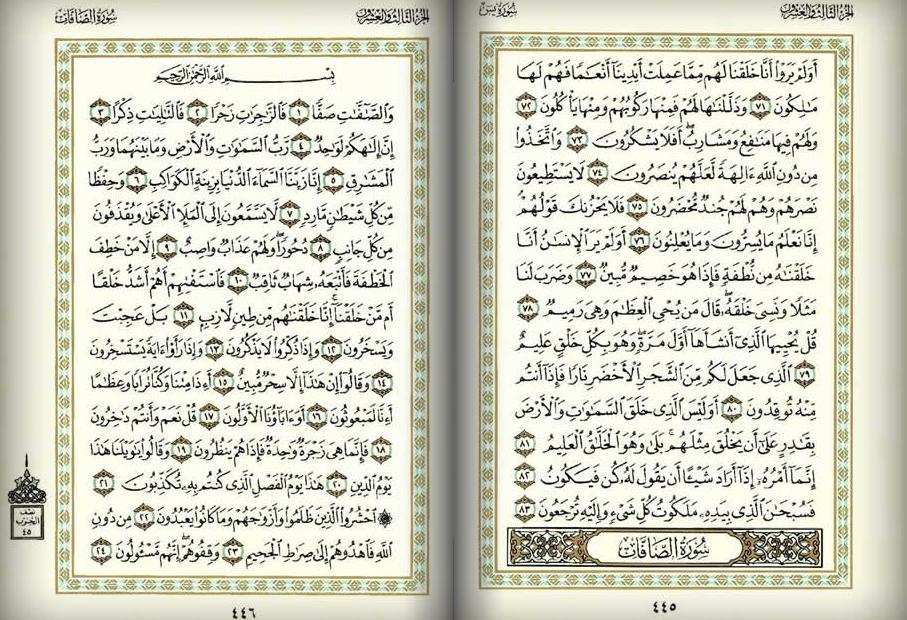 الجزء الثالث والعشرون
سورة يس
أَوَلَمْ يَرَوْا أَنَّا خَلَقْنَا لَهُم مِّمَّا عَمِلَتْ أَيْدِينَا أَنْعَامًا فَهُمْ لَهَا
مَالِكُونَ ٧١ وَذَلَّلْنَاهَا لَهُمْ فَمِنْهَا رَكُوبُهُمْ وَمِنْهَا يَأْكُلُونَ ٧٢
وَلَهُمْ فِيهَا مَنَافِعُ وَمَشَارِبُ أَفَلَا يَشْكُرُونَ ٧٣ وَاتَّخَذُوا
مِن دُونِ اللَّهِ آلِهَةً لَّعَلَّهُمْ يُنصَرُونَ ٧٤ لَا يَسْتَطِيعُونَ
نَصْرَهُمْ وَهُمْ لَهُمْ جُندٌ مُّحْضَرُونَ ٧٥ فَلَا يَحْزُنكَ قَوْلُهُمْ
إِنَّا نَعْلَمُ مَا يُسِرُّونَ وَمَا يُعْلِنُونَ ٧٦ أَوَلَمْ يَرَ الْإِنسَانُ أَنَّا
خَلَقْنَاهُ مِن نُّطْفَةٍ فَإِذَا هُوَ خَصِيمٌ مُّبِينٌ ٧٧ وَضَرَبَ لَنَا
مَثَلًا وَنَسِيَ خَلْقَهُ قَالَ مَن يُحْيِي الْعِظَامَ وَهِيَ رَمِيمٌ ٧٨
قُلْ يُحْيِيهَا الَّذِي أَنشَأَهَا أَوَّلَ مَرَّةٍ وَهُوَ بِكُلِّ خَلْقٍ عَلِيمٌ
٧٩ الَّذِي جَعَلَ لَكُم مِّنَ الشَّجَرِ الْأَخْضَرِ نَارًا فَإِذَا أَنتُم
مِّنْهُ تُوقِدُونَ ٨٠ أَوَلَيْسَ الَّذِي خَلَقَ السَّمَاوَاتِ وَالْأَرْضَ
بِقَادِرٍ عَلَىٰ أَن يَخْلُقَ مِثْلَهُم بَلَىٰ وَهُوَ الْخَلَّاقُ الْعَلِيمُ ٨١
إِنَّمَا أَمْرُهُ إِذَا أَرَادَ شَيْئًا أَن يَقُولَ لَهُ كُن فَيَكُونُ ٨٢
فَسُبْحَانَ الَّذِي بِيَدِهِ مَلَكُوتُ كُلِّ شَيْءٍ وَإِلَيْهِ تُرْجَعُونَ ٨٣
سورة الصافات
٤٤٥
الجزء الثالث والعشرون
سورة الصافات
بِسْمِ اللَّهِ الرَّحْمَٰنِ الرَّحِيمِ
وَالصَّافَّاتِ صَفًّا ١ فَالزَّاجِرَاتِ زَجْرًا ٢ فَالتَّالِيَاتِ ذِكْرًا ٣
إِنَّ إِلَٰهَكُمْ لَوَاحِدٌ ٤ رَّبُّ السَّمَاوَاتِ وَالْأَرْضِ وَمَا بَيْنَهُمَا وَرَبُّ
الْمَشَارِقِ ٥ إِنَّا زَيَّنَّا السَّمَاءَ الدُّنْيَا بِزِينَةٍ الْكَوَاكِبِ ٦ وَحِفْظًا
مِّن كُلِّ شَيْطَانٍ مَّارِدٍ ٧ لَّا يَسَّمَّعُونَ إِلَى الْمَلَإِ الْأَعْلَىٰ وَيُقْذَفُونَ
مِن كُلِّ جَانِبٍ ٨ دُحُورًا وَلَهُمْ عَذَابٌ وَاصِبٌ ٩ إِلَّا مَنْ خَطِفَ
الْخَطْفَةَ فَأَتْبَعَهُ شِهَابٌ ثَاقِبٌ ١٠ فَاسْتَفْتِهِمْ أَهُمْ أَشَدُّ خَلْقًا
أَم مَّنْ خَلَقْنَا إِنَّا خَلَقْنَاهُم مِّن طِينٍ لَّازِبٍ ١١ بَلْ عَجِبْتَ
وَيَسْخَرُونَ ١٢ وَإِذَا ذُكِّرُوا لَا يَذْكُرُونَ ١٣ وَإِذَا رَأَوْا آيَةً يَسْتَسْخِرُونَ
١٤ وَقَالُوا إِنْ هَٰذَا إِلَّا سِحْرٌ مُّبِينٌ ١٥ أَإِذَا مِتْنَا وَكُنَّا تُرَابًا وَعِظَامًا
أَإِنَّا لَمَبْعُوثُونَ ١٦ أَوَآبَاؤُنَا الْأَوَّلُونَ ١٧ قُلْ نَعَمْ وَأَنتُمْ دَاخِرُونَ
١٨ فَإِنَّمَا هِيَ زَجْرَةٌ وَاحِدَةٌ فَإِذَا هُمْ يَنظُرُونَ ١٩ وَقَالُوا يَا وَيْلَنَا هَٰذَا
يَوْمُ الدِّينِ ٢٠ هَٰذَا يَوْمُ الْفَصْلِ الَّذِي كُنتُم بِهِ تُكَذِّبُونَ ٢١
۞ احْشُرُوا الَّذِينَ ظَلَمُوا وَأَزْوَاجَهُمْ وَمَا كَانُوا يَعْبُدُونَ ٢٢ مِن دُونِ
اللَّهِ فَاهْدُوهُمْ إِلَىٰ صِرَاطِ الْجَحِيمِ ٢٣ وَقِفُوهُمْ إِنَّهُم مَّسْئُولُونَ ٢٤
نصف
الحزب
٤٥
٤٤٦